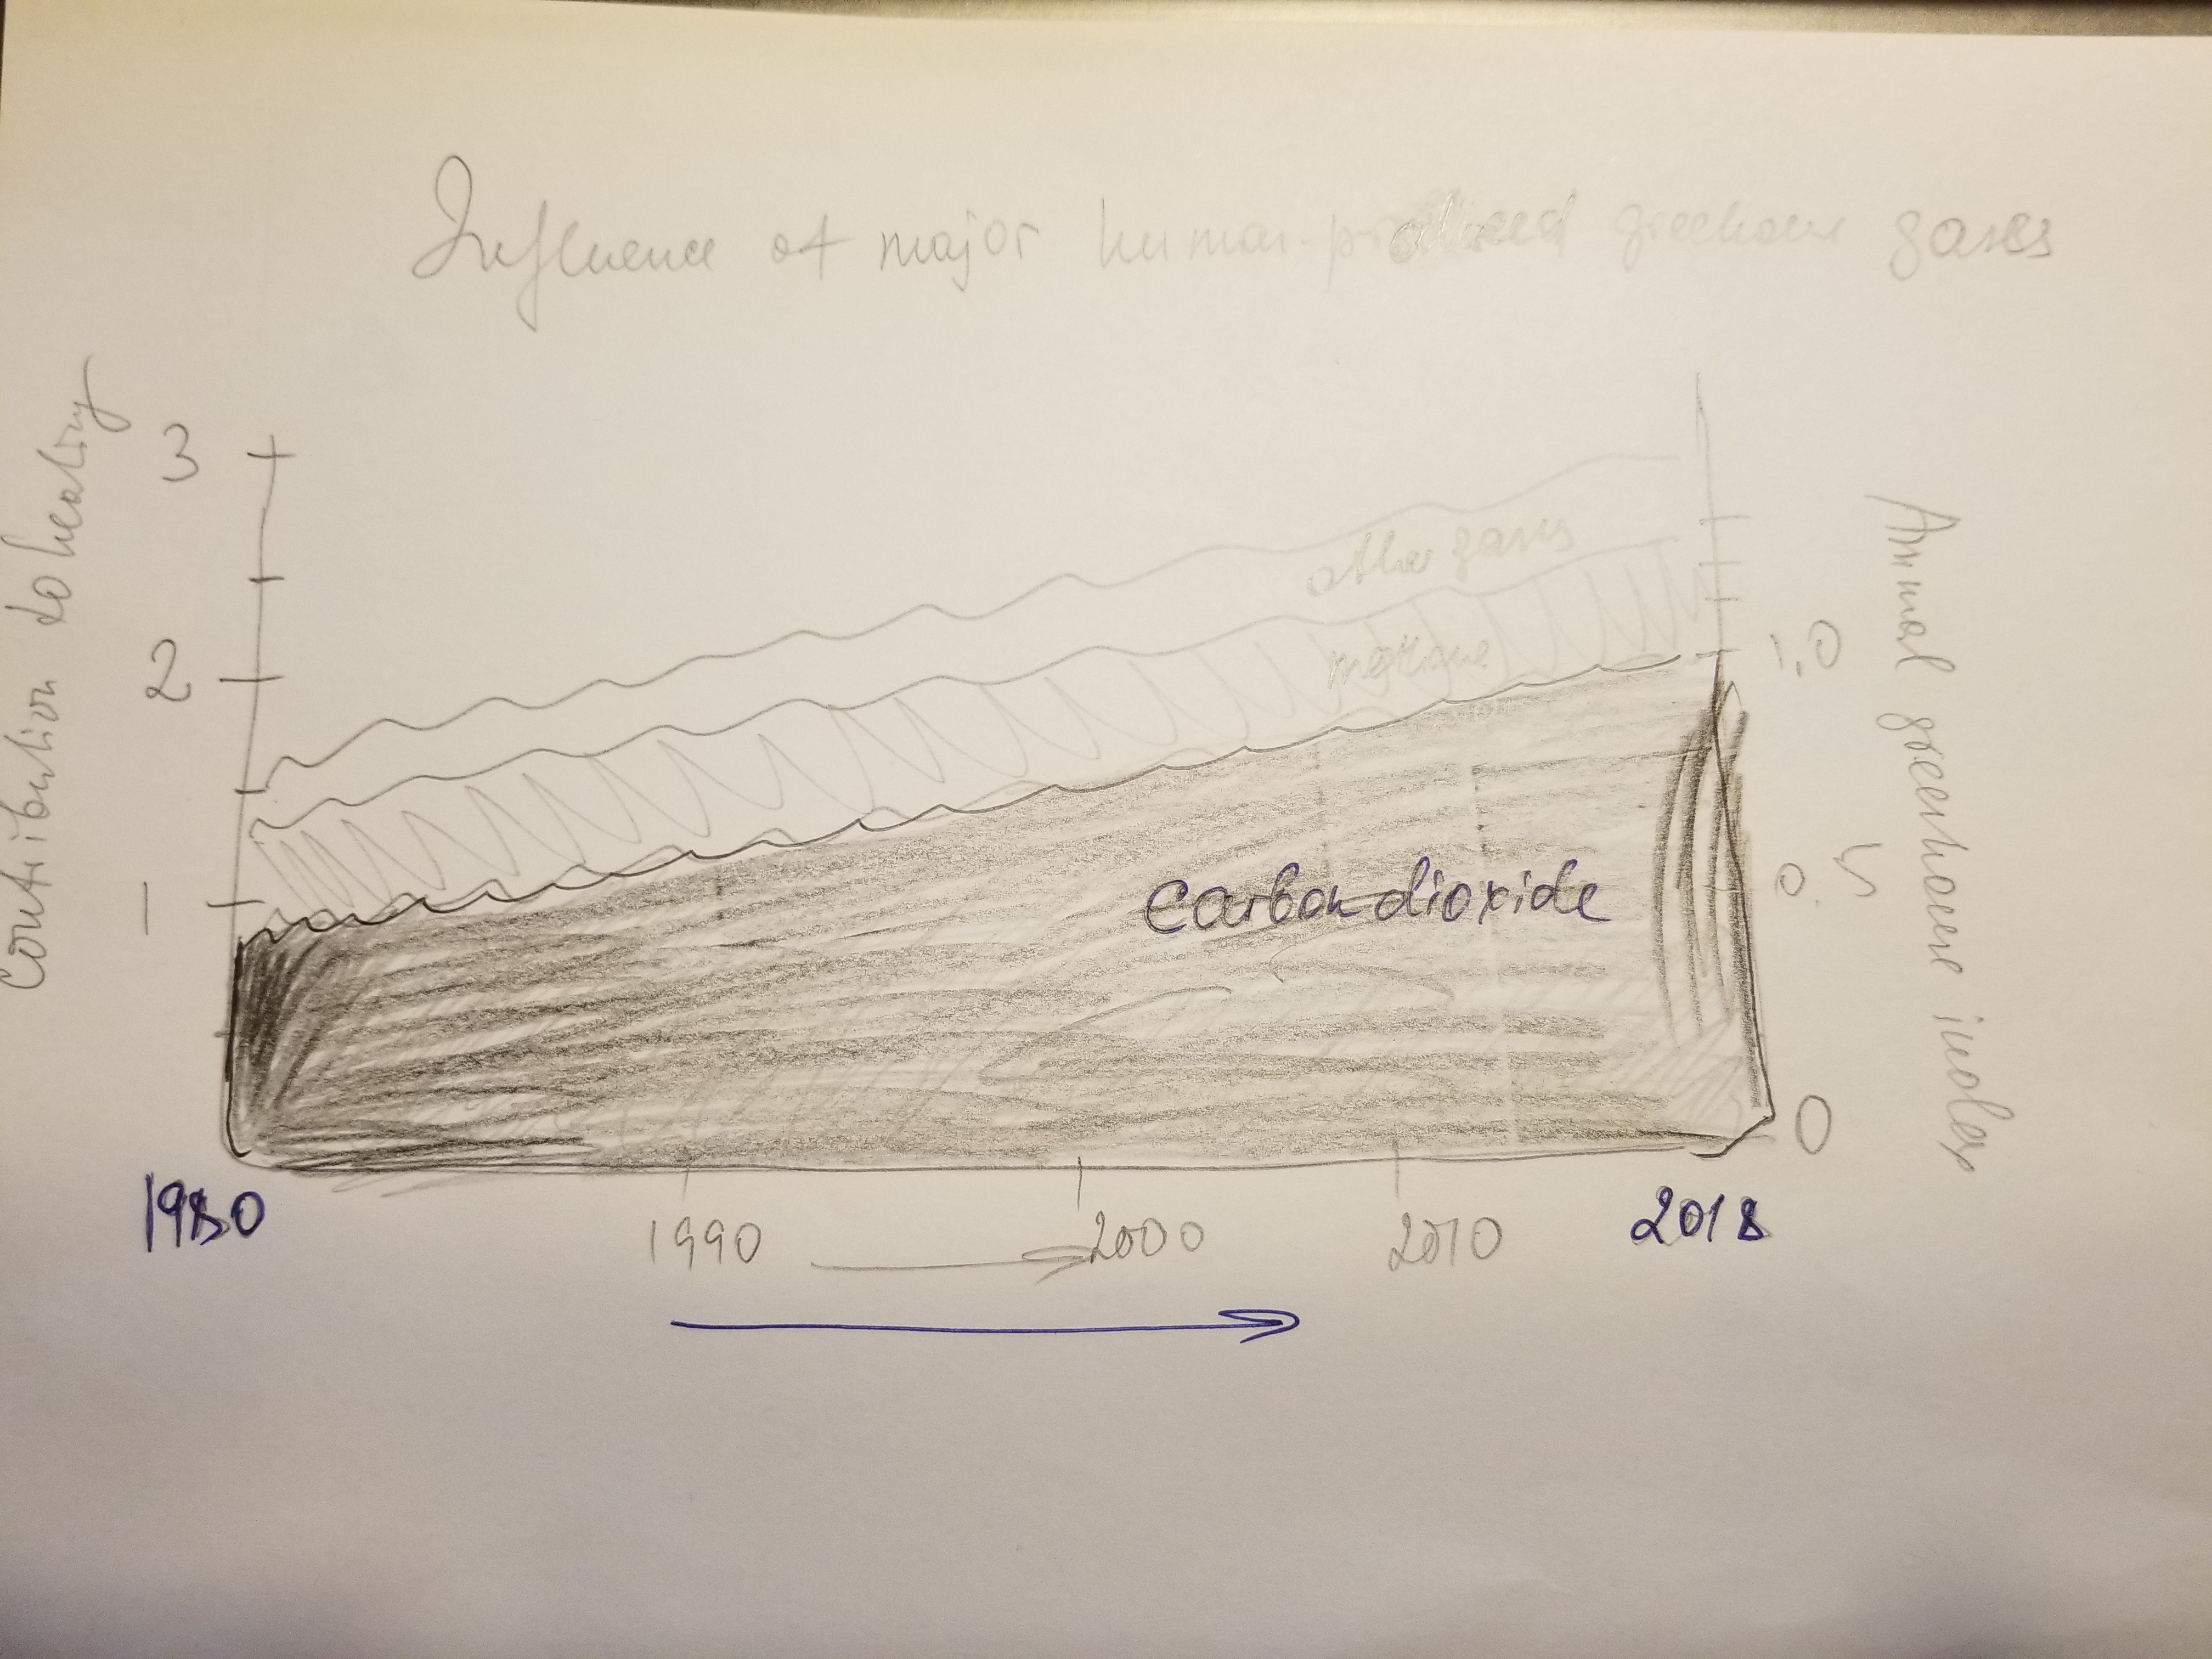 Influence of major human-produced greehouse gases
Contribution to heating
3
2
1
other gases
methane
carbon dioxide
1.0
0.5
0
Annual greenhouse index
1980
1990
2000
2010
2018